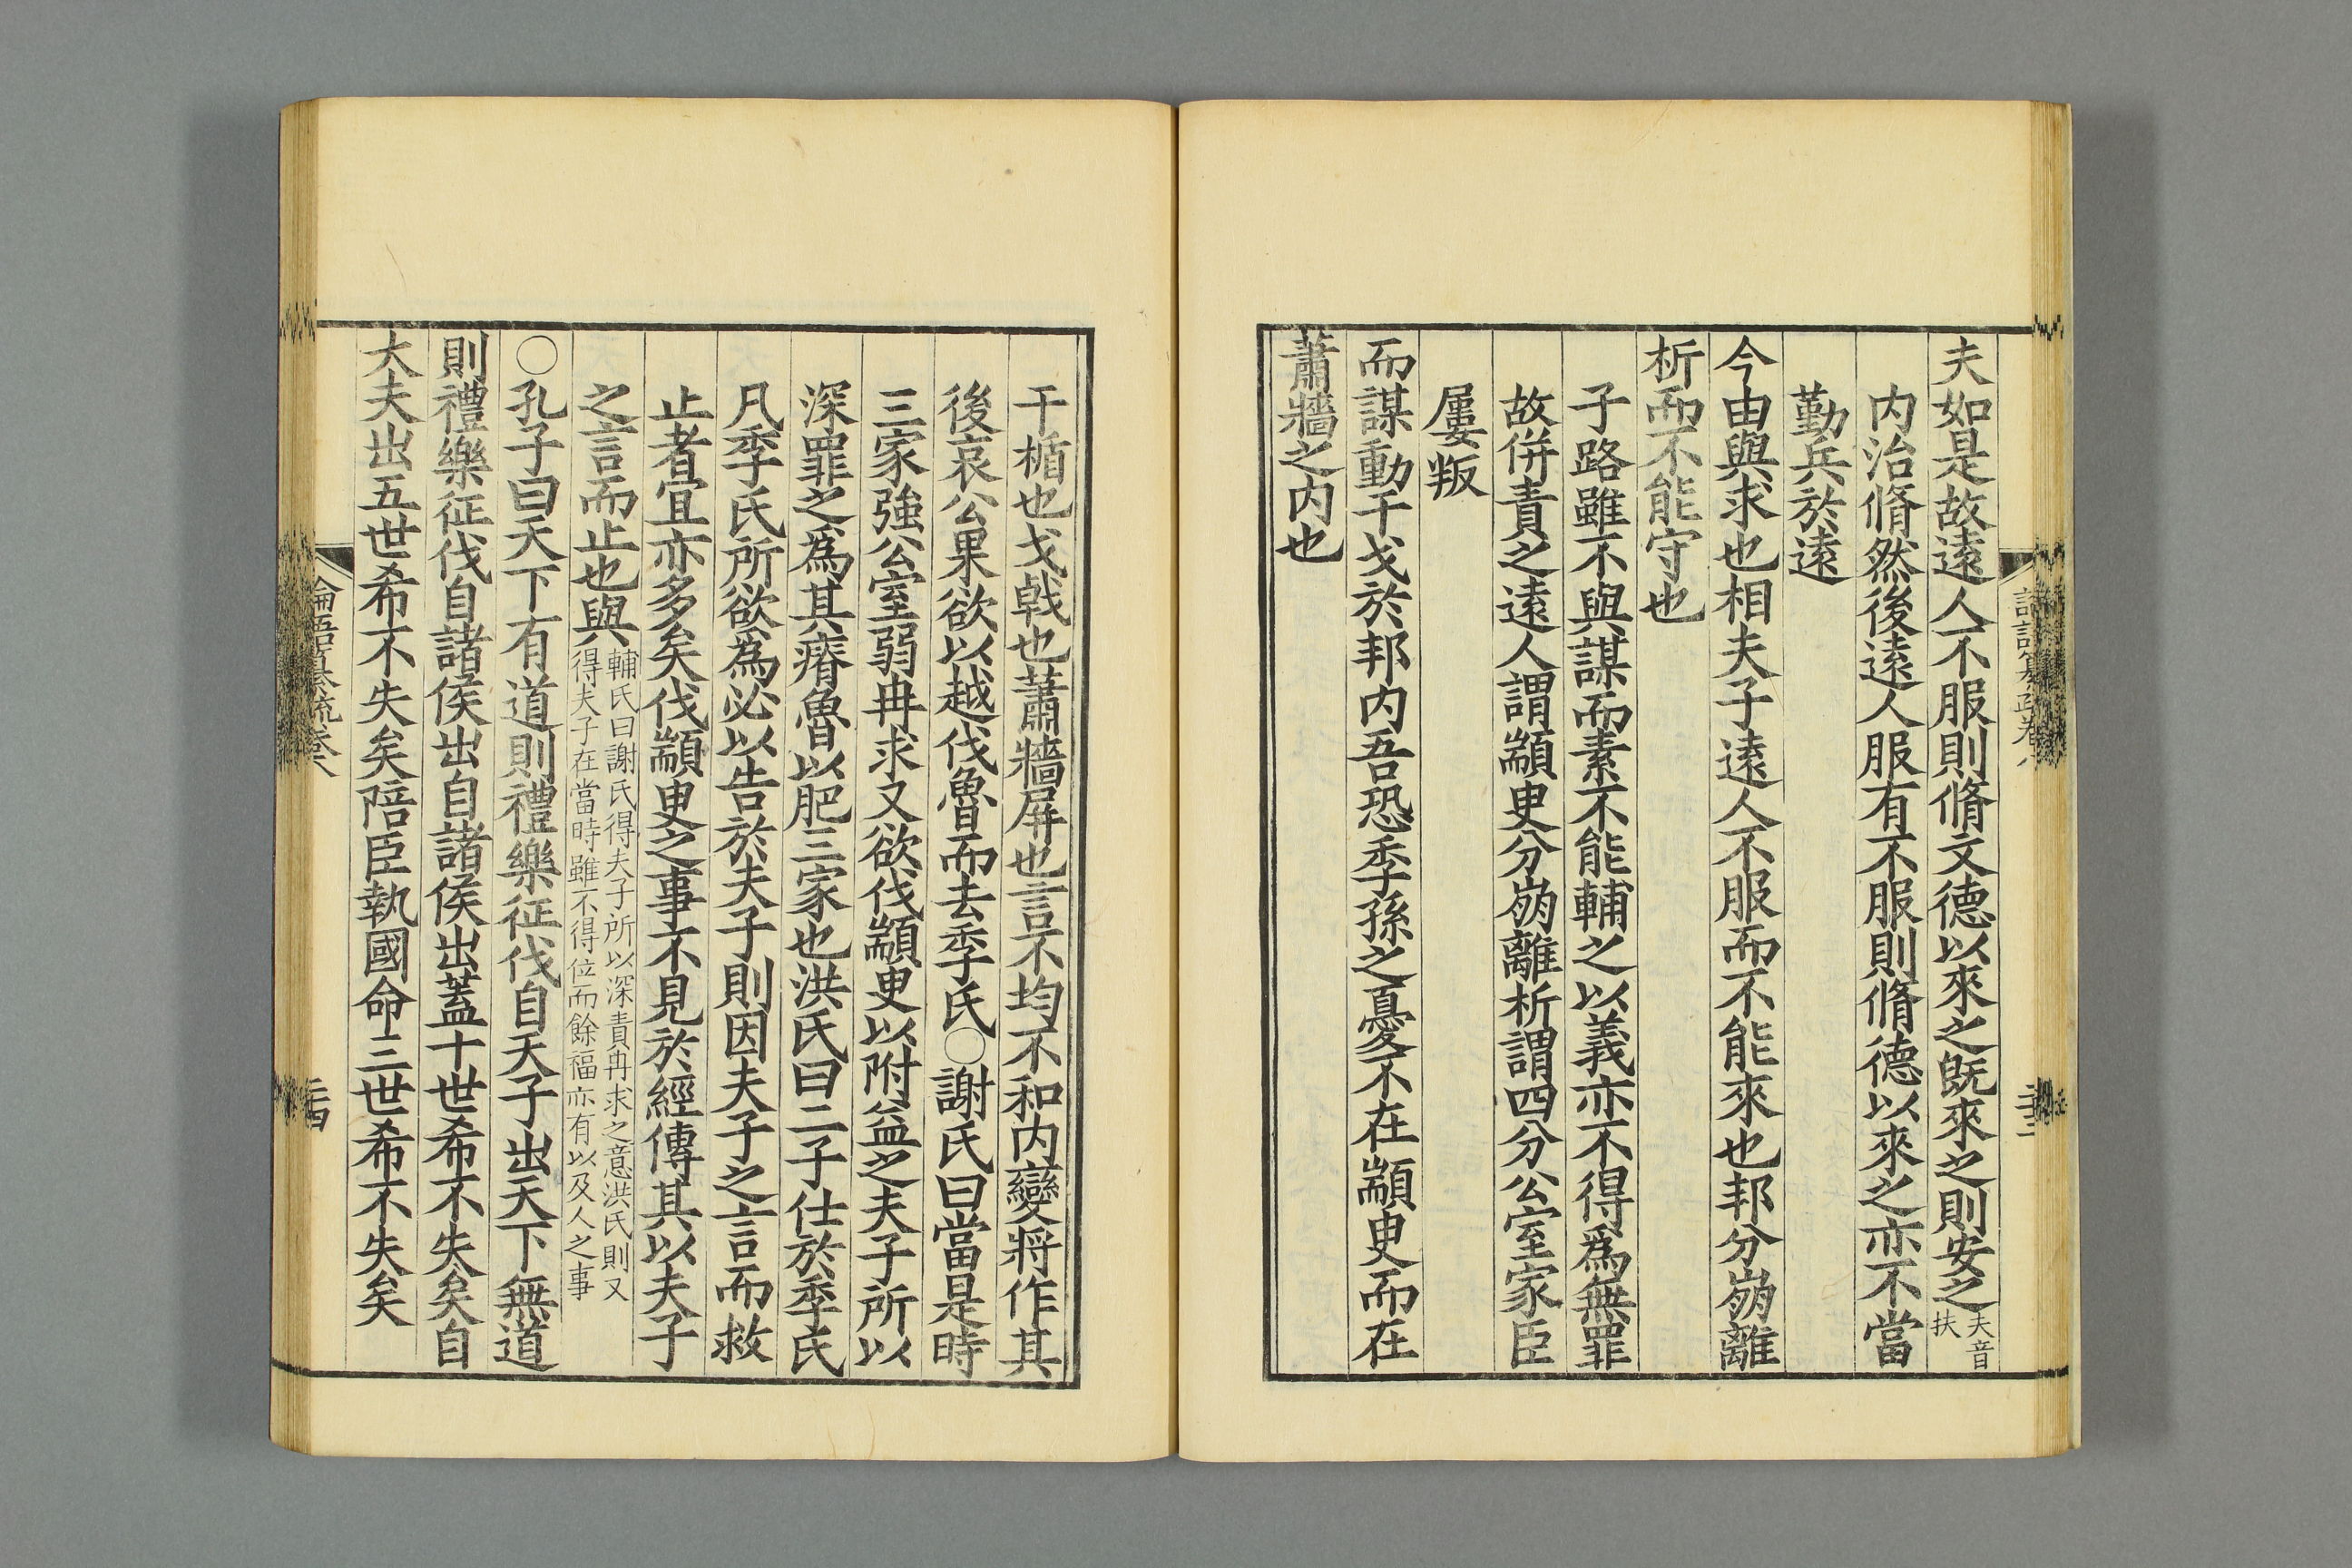 夫如是故遠人不服則脩文德以來之既來之則安之夫音扶
内治脩然後遠人服有不服則脩德以來之亦不當
勤兵於遠
今由與求也相夫子遠人不服而不能來也邦分崩離
析而不能守也
子路雖不與謀而素不能輔之以義亦不得爲無罪
故併責之遠人謂顓臾分崩離析謂四分公室家臣
屢叛
而謀動干戈於邦内吾恐季孫之憂不在顓臾而在
蕭牆之内也
干楯也戈戟也蕭牆屏也言不均不和内變將作其
後哀公果欲以越伐魯而去季氏○謝氏曰當是時
三家強公室弱冉求又欲伐顓臾以附益之夫子所以
深罪之爲其瘠魯以肥三家也洪氏曰二子仕於季氏
凡季氏所欲爲必以告於夫子則因夫子之言而救
止者宜亦多矣伐顓臾之事不見於經傳其以夫子
之言而止也與輔氏曰謝氏得夫子所以深責冉求之意洪氏則又得夫子在當時雖不得位而餘福亦有以及人之事
○孔子曰天下有道則禮樂征伐自天子出天下無道
則禮樂征伐自諸侯出自諸侯出蓋十世希不失矣自
大夫出五世希不失矣陪臣執國命三世希不失矣
論語纂疏卷八
二十四